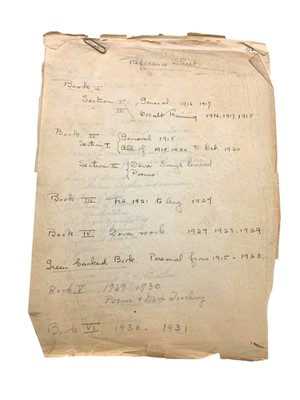 Reference Sheet
Book I
Section I General 1916 1917
" II Occult Training 1916, 1917, 1918
Book II General 1918
Section I All of 1919, 1920 to Oct. 1920
Section II Deva
Poems
Book III 1921 to Aug 1927
Book IV Deva work 1927. 1928. 1929.
Green backed Book Personal from 1915 - 1923.
Book V 1929 - 1930
Poems & Deva Teaching
Book VI. 1930 - 1931.